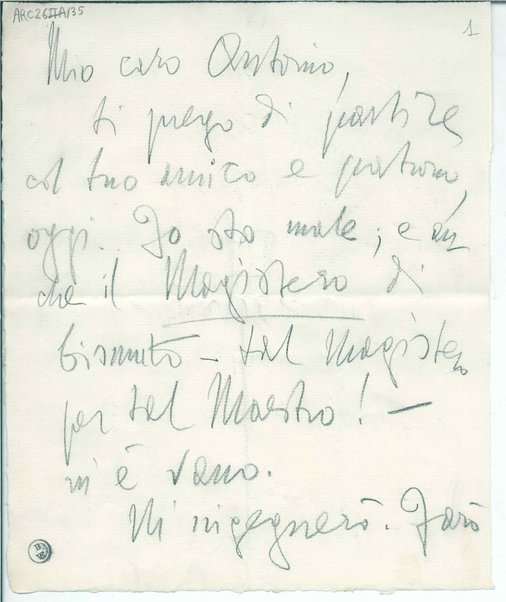 ARC26IIA/35
1
Mio caro Antonio,
ti prego di partire,
col tuo amico e patrono,
oggi. Io sto male; e an
che il Magistero di
bismuto – tal Magistero
per tal Maestro! –
m'è vano.
M'ingegnerò. Farò